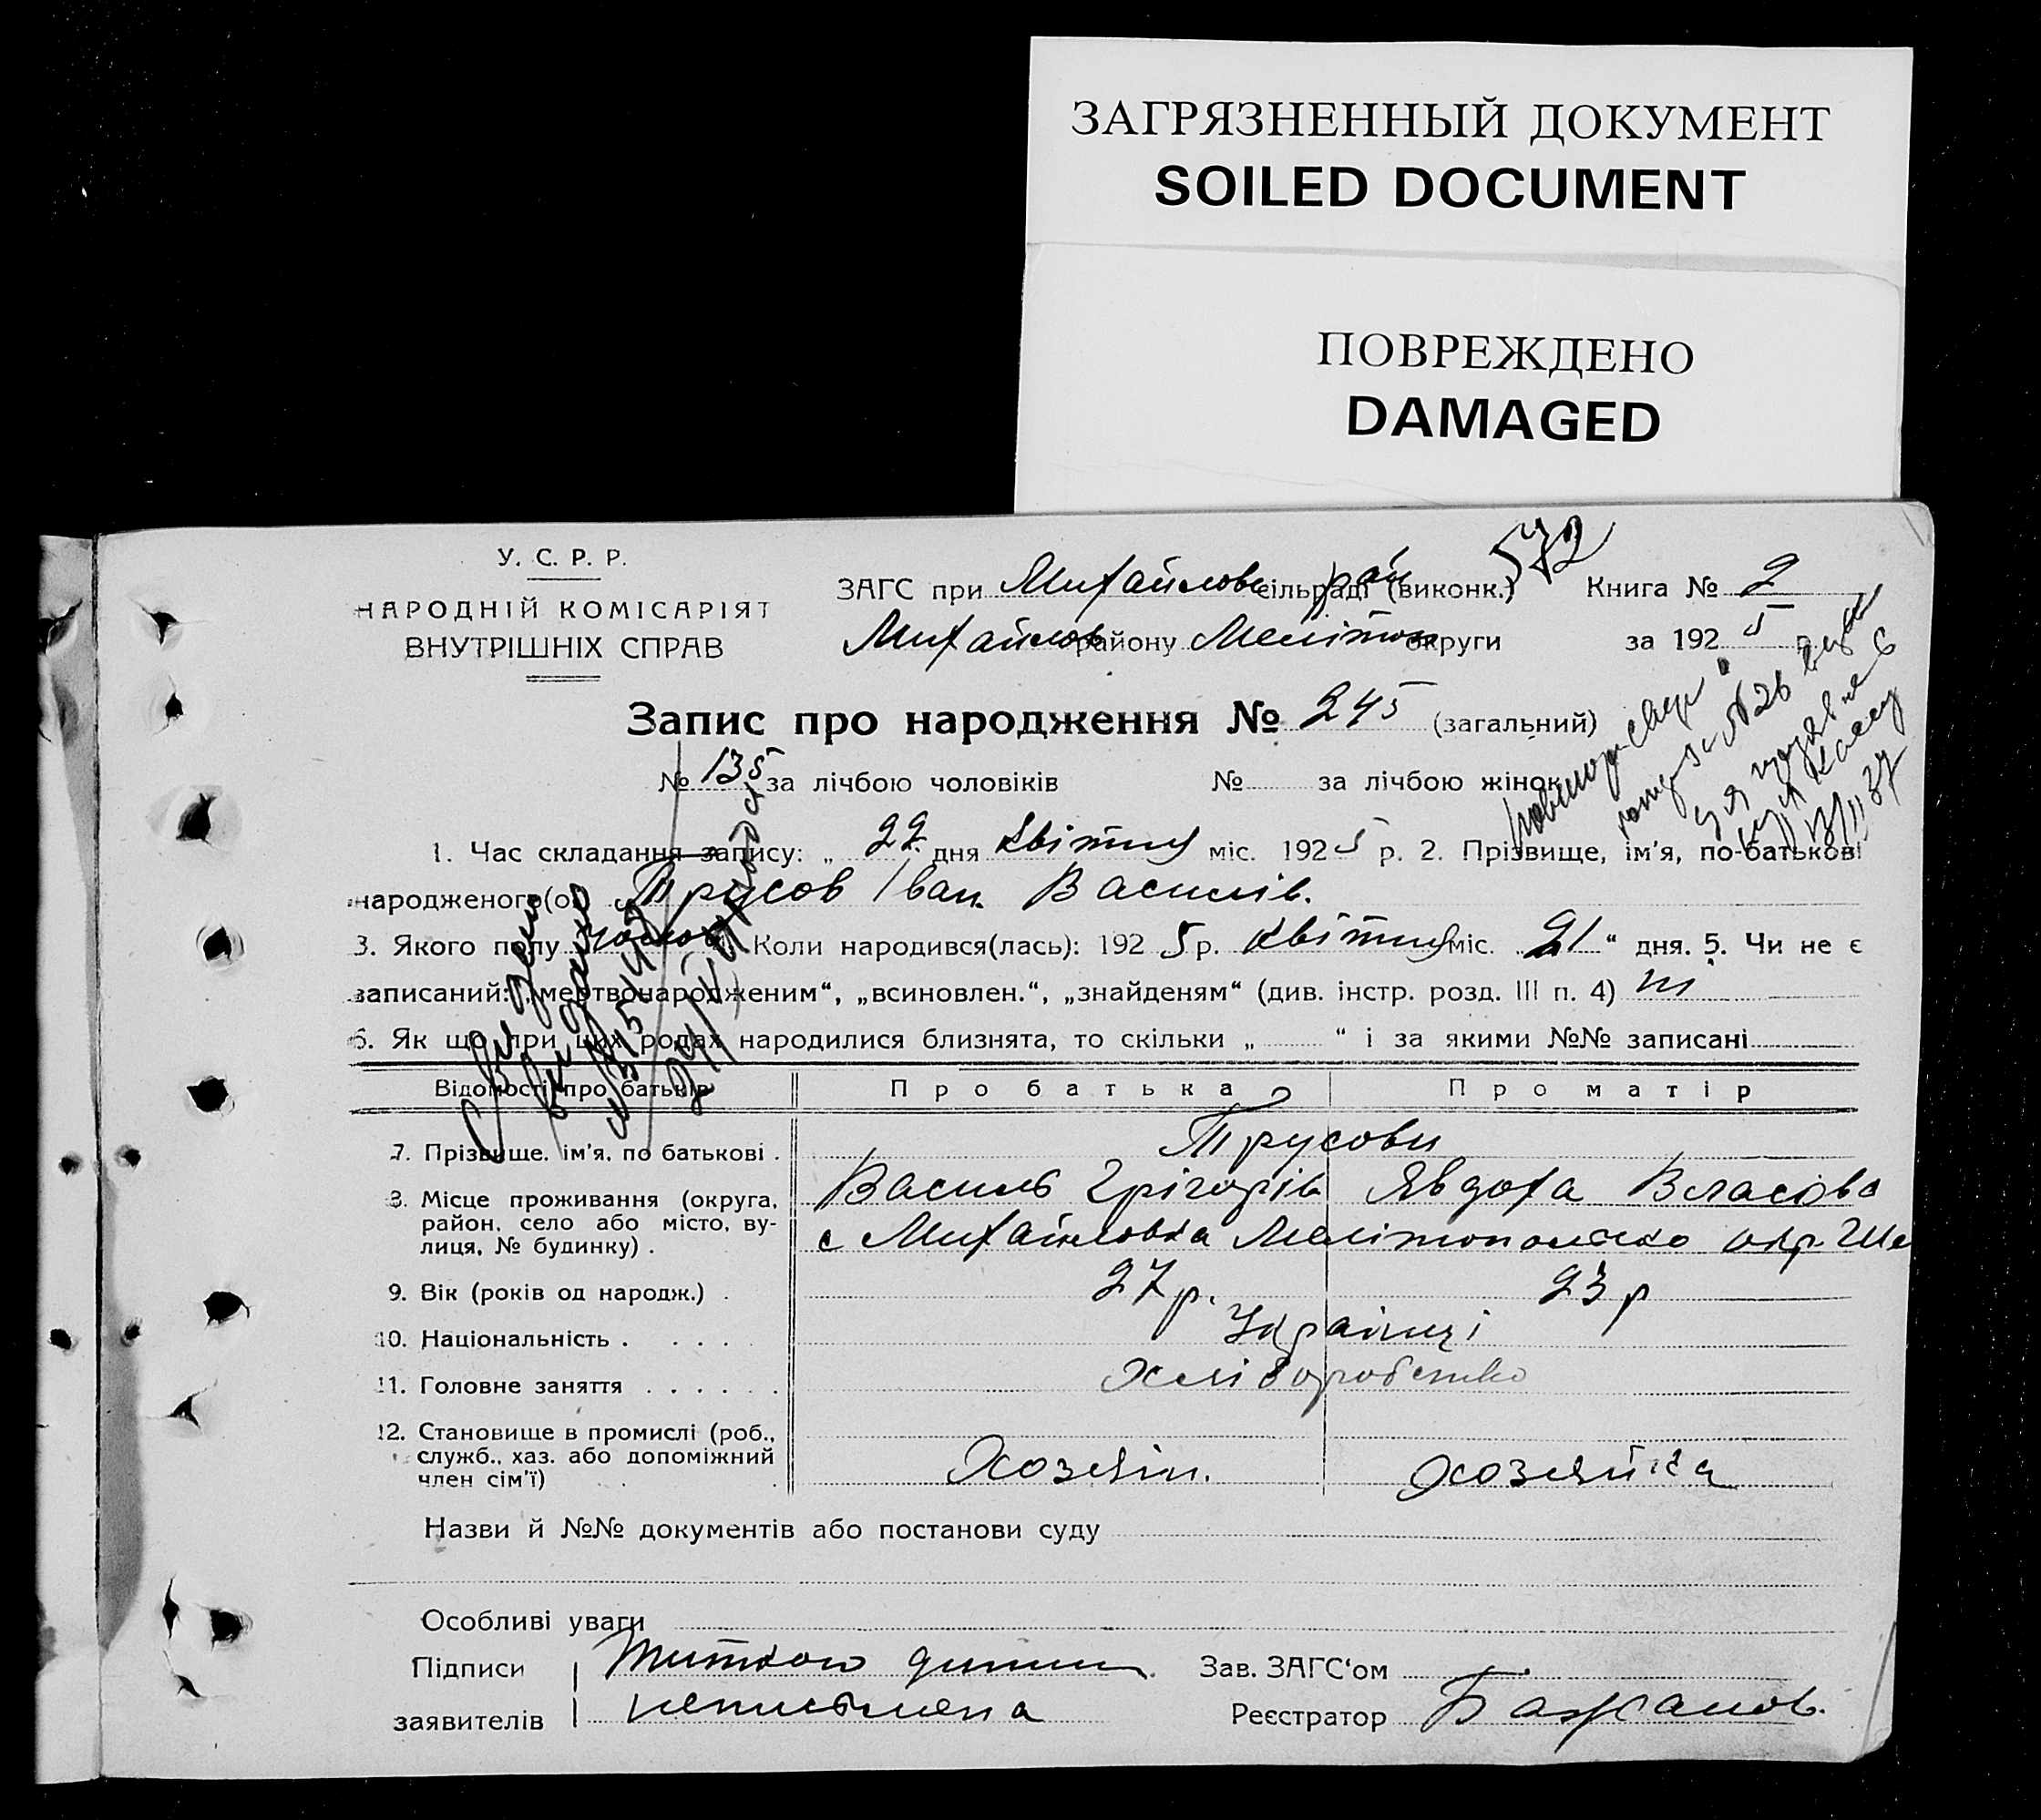 ЗАГРЯЗНЕННЫЙ ДОКУМЕНТ
SOILED DOCUMENT
ПОВРЕЖДЕНО
DAMAGED
572
У. С. Р. Р.
НАРОДНІЙ КОМІСАРІЯТ
ВНУТРІШНІХ СПРАВ
ЗАГС при Михайлов сільраді рай (виконк.) Книга № 2
Михайлов району Мелітоп округи за 1925 р.
Запис про народження № 245 (загальний)
№ 135 за лічбою чоловіків № за лічбою жінок
1. Час складання запису: „ 22 дня квітня міс. 1925 р. 2. Прізвище, ім'я, по-батькові
народженого(ої) Трусов Іван Василів.
3. Якого полу чолов. Коли народився(лась): 1925 р. квітня міс. 21 “ дня. 5. Чи не є
записаний: „мертвонародженим“, „всиновлен.“, „знайденям“ (див. інстр. розд. III п. 4) ні
6. Як що при цих родах народилися близнята, то скільки „ “ і за якими №№ записані
Відомості про батьків Про батька Про матір
7. Прізвище, ім'я, по батькові . Трусови
Василь Грігорів Явдоха Власовa
8. Місце проживання (округа, район, село або місто, вулиця, № будинку) . с Михайловка Мелітопольско окр.
9. Вік (років од народж.) . 27 р. 23 р
10. Національність . . . . . Українці
11. Головне заняття . . . . . . Хліборобство
12. Становище в промислі (роб., служб., хаз. або допоміжний член сім'ї) Хозяїн. хозяйка
Назви й №№ документів або постанови суду
Особливі уваги
Підписи Зав. ЗАГС'ом
заявителів неписьмена Реєстратор Бажанов.